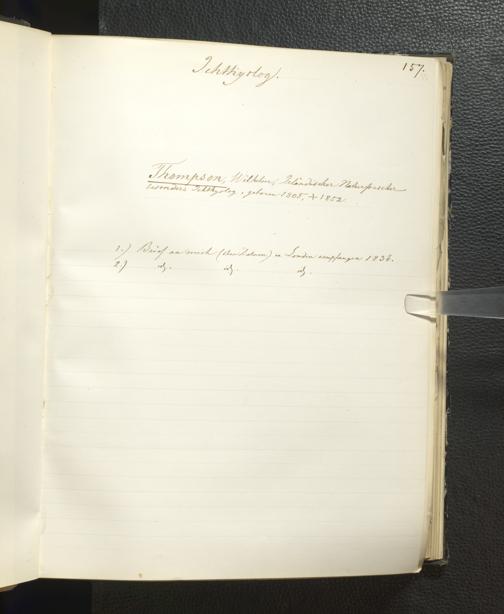 Ichthyolog.
157.
Thompson, Wilhelm, Irländischer Naturforscher
besonders Ichthyolog, geboren 1805, + 1852.
1.) Brief an mich (ohne Datum) in London empfangen 1836.
2.) dg. dg. dg.